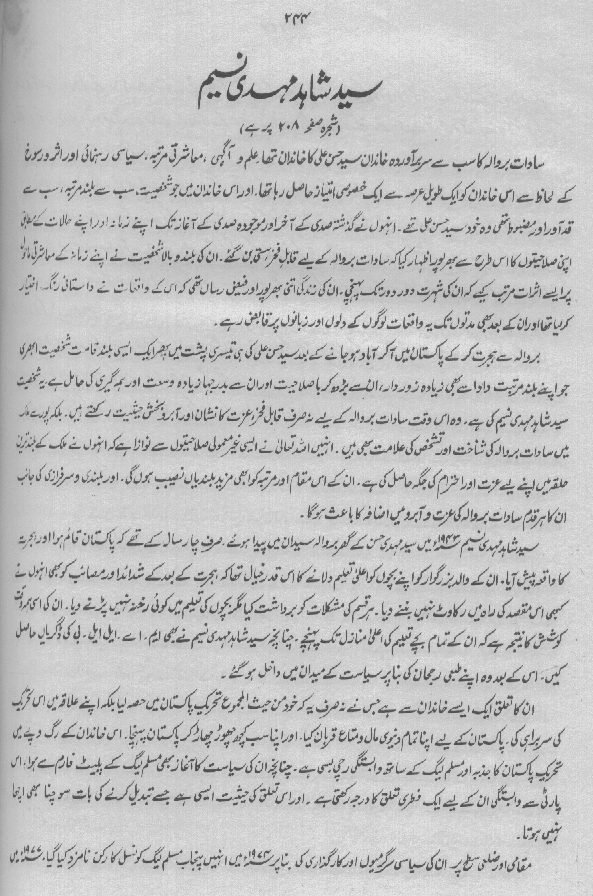 ۲۴۴
سید شاہد مہدی نسیم
(شجرہ صفحہ ۲۰۸ پر ہے)
سادات بروالہ کا سب سے سربرآوردہ خاندان سید حسن علی کا خاندان تھا۔ علم و آگہی، معاشرتی مرتبہ، سیاسی رہنمائی اور اثر و رسوخ
کے لحاظ سے اس خاندان کو ایک طویل عرصہ سے ایک خصوصی امتیاز حاصل رہا تھا۔ اور اس خاندان میں جو شخصیت، سب سے بلند مرتبہ، سب سے
قد آور اور مضبوط تھی وہ خود سید حسن علی تھے۔ انہوں نے گذشتہ صدی کے آخر اور موجودہ صدی کے آغاز تک اپنے زمانہ اور اپنے حالات کے مطابق
اپنی صلاحیتوں کا اس طرح سے بھرپور اظہار کیا کہ سادات بروالہ کے لیے قابل فخر بن گئے۔ ان کی بلند و بالا شخصیت نے اپنے زمانہ کے معاشرتی ماحول
پر ایسے اثرات مرتب کیے کہ ان کی شہرت دور دور تک پہنچی۔ ان کی زندگی اتنی بھرپور اور فیض رساں تھی کہ اس کے واقعات نے داستانی رنگ اختیار
کر لیا تھا اور ان کے بعد بھی مدتوں تک یہ واقعات لوگوں کے دلوں اور زبانوں پر قابض رہے۔
بروالہ سے ہجرت کر کے پاکستان میں آ کر آباد ہو جانے کے بعد سید حسن علی کی ہی تیسری پشت میں پھر ایک ایسی بلند قامت شخصیت ابھری
جو اپنے بلند مرتبت دادا سے بھی زیادہ زوردار، ان سے بڑھ کر با صلاحیت اور ان سے بدرجہا زیادہ وسعت اور ہمہ گیری کی حامل ہے، یہ شخصیت
سید شاہد مہدی نسیم کی ہے۔ وہ اس وقت سادات بروالہ کے لیے نہ صرف قابل فخر و عزت کا نشان اور آبرو بخش حیثیت رکھتے ہیں۔ بلکہ پورے ملک
میں سادات بروالہ کی شناخت اور تشخص کی علامت بھی ہیں۔ انہیں اللہ تعالیٰ نے ایسی غیر معمولی صلاحیتوں سے نوازا ہے کہ انہوں نے ملک کے بلند ترین
حلقہ میں اپنے لیے عزت اور احترام کی جگہ حاصل کی ہے۔ ان کے اس مقام اور مرتبہ کو ابھی مزید بلندیاں نصیب ہوں گی۔ اور بلندی و سرفرازی کی جانب
ان کا ہر قدم سادات بروالہ کی عزت و آبرو میں اضافہ کا باعث ہوگا۔
سید شاہد مہدی نسیم ۱۹۴۳ء میں سید مہدی حسن کے گھر بروالہ سیدان میں پیدا ہوئے۔ صرف چار سال کے تھے کہ پاکستان قائم ہوا اور ہجرت
کا واقعہ پیش آیا۔ ان کے والد بزرگوار کو اپنے بچوں کو اعلیٰ تعلیم دلانے کا اس قدر خیال تھا کہ ہجرت کے بعد کے شدائد اور مصائب کو بھی انہوں نے
کبھی اس مقصد کی راہ میں رکاوٹ نہیں بننے دیا۔ ہر قسم کی مشکلات کو برداشت کیا مگر بچوں کی تعلیم میں کوئی رخنہ نہیں پڑنے دیا۔ ان کی اسی
کوشش کا نتیجہ ہے کہ ان کے تمام بچے تعلیم کی اعلیٰ منازل تک پہنچے۔ چنانچہ سید شاہد مہدی نسیم نے بھی ایم۔ اے۔ ایل۔ ایل۔ بی کی ڈگریاں حاصل
کیں۔ اس کے بعد وہ اپنے طبعی رجحان کی بنا پر سیاست کے میدان میں داخل ہو گئے۔
ان کا تعلق ایک ایسے خاندان سے ہے جس نے نہ صرف یہ کہ خود من حیث المجموع تحریک پاکستان میں حصہ لیا بلکہ اپنے علاقہ میں اس تحریک
کی سربراہی کی۔ پاکستان کے لیے اپنا تمام دنیوی مال و متاع قربان کیا، اور اپنا سب کچھ چھوڑ چھاڑ کر پاکستان پہنچا۔ اس خاندان کے رگ و پے میں
تحریک پاکستان کا جذبہ اور مسلم لیگ کے ساتھ وابستگی رچی بسی ہے۔ چنانچہ ان کی سیاست کا آغاز بھی مسلم لیگ کے پلیٹ فارم سے ہوا، اس
پارٹی سے وابستگی ان کے لیے ایک فطری تعلق کا درجہ رکھتی ہے۔ اور اس تعلق کی حیثیت ایسی ہے جسے تبدیل کرنے کی بات سوچنا بھی اچھا
نہیں ہوتا۔
مقامی اور ضلعی سطح پر ان کی سیاسی سرگرمیوں اور کارگذاری کی بنا پر ۱۹۷۴ء میں انہیں پنجاب مسلم لیگ کونسل کا رکن نامزد کیا گیا، ۱۹۷۷ء میں